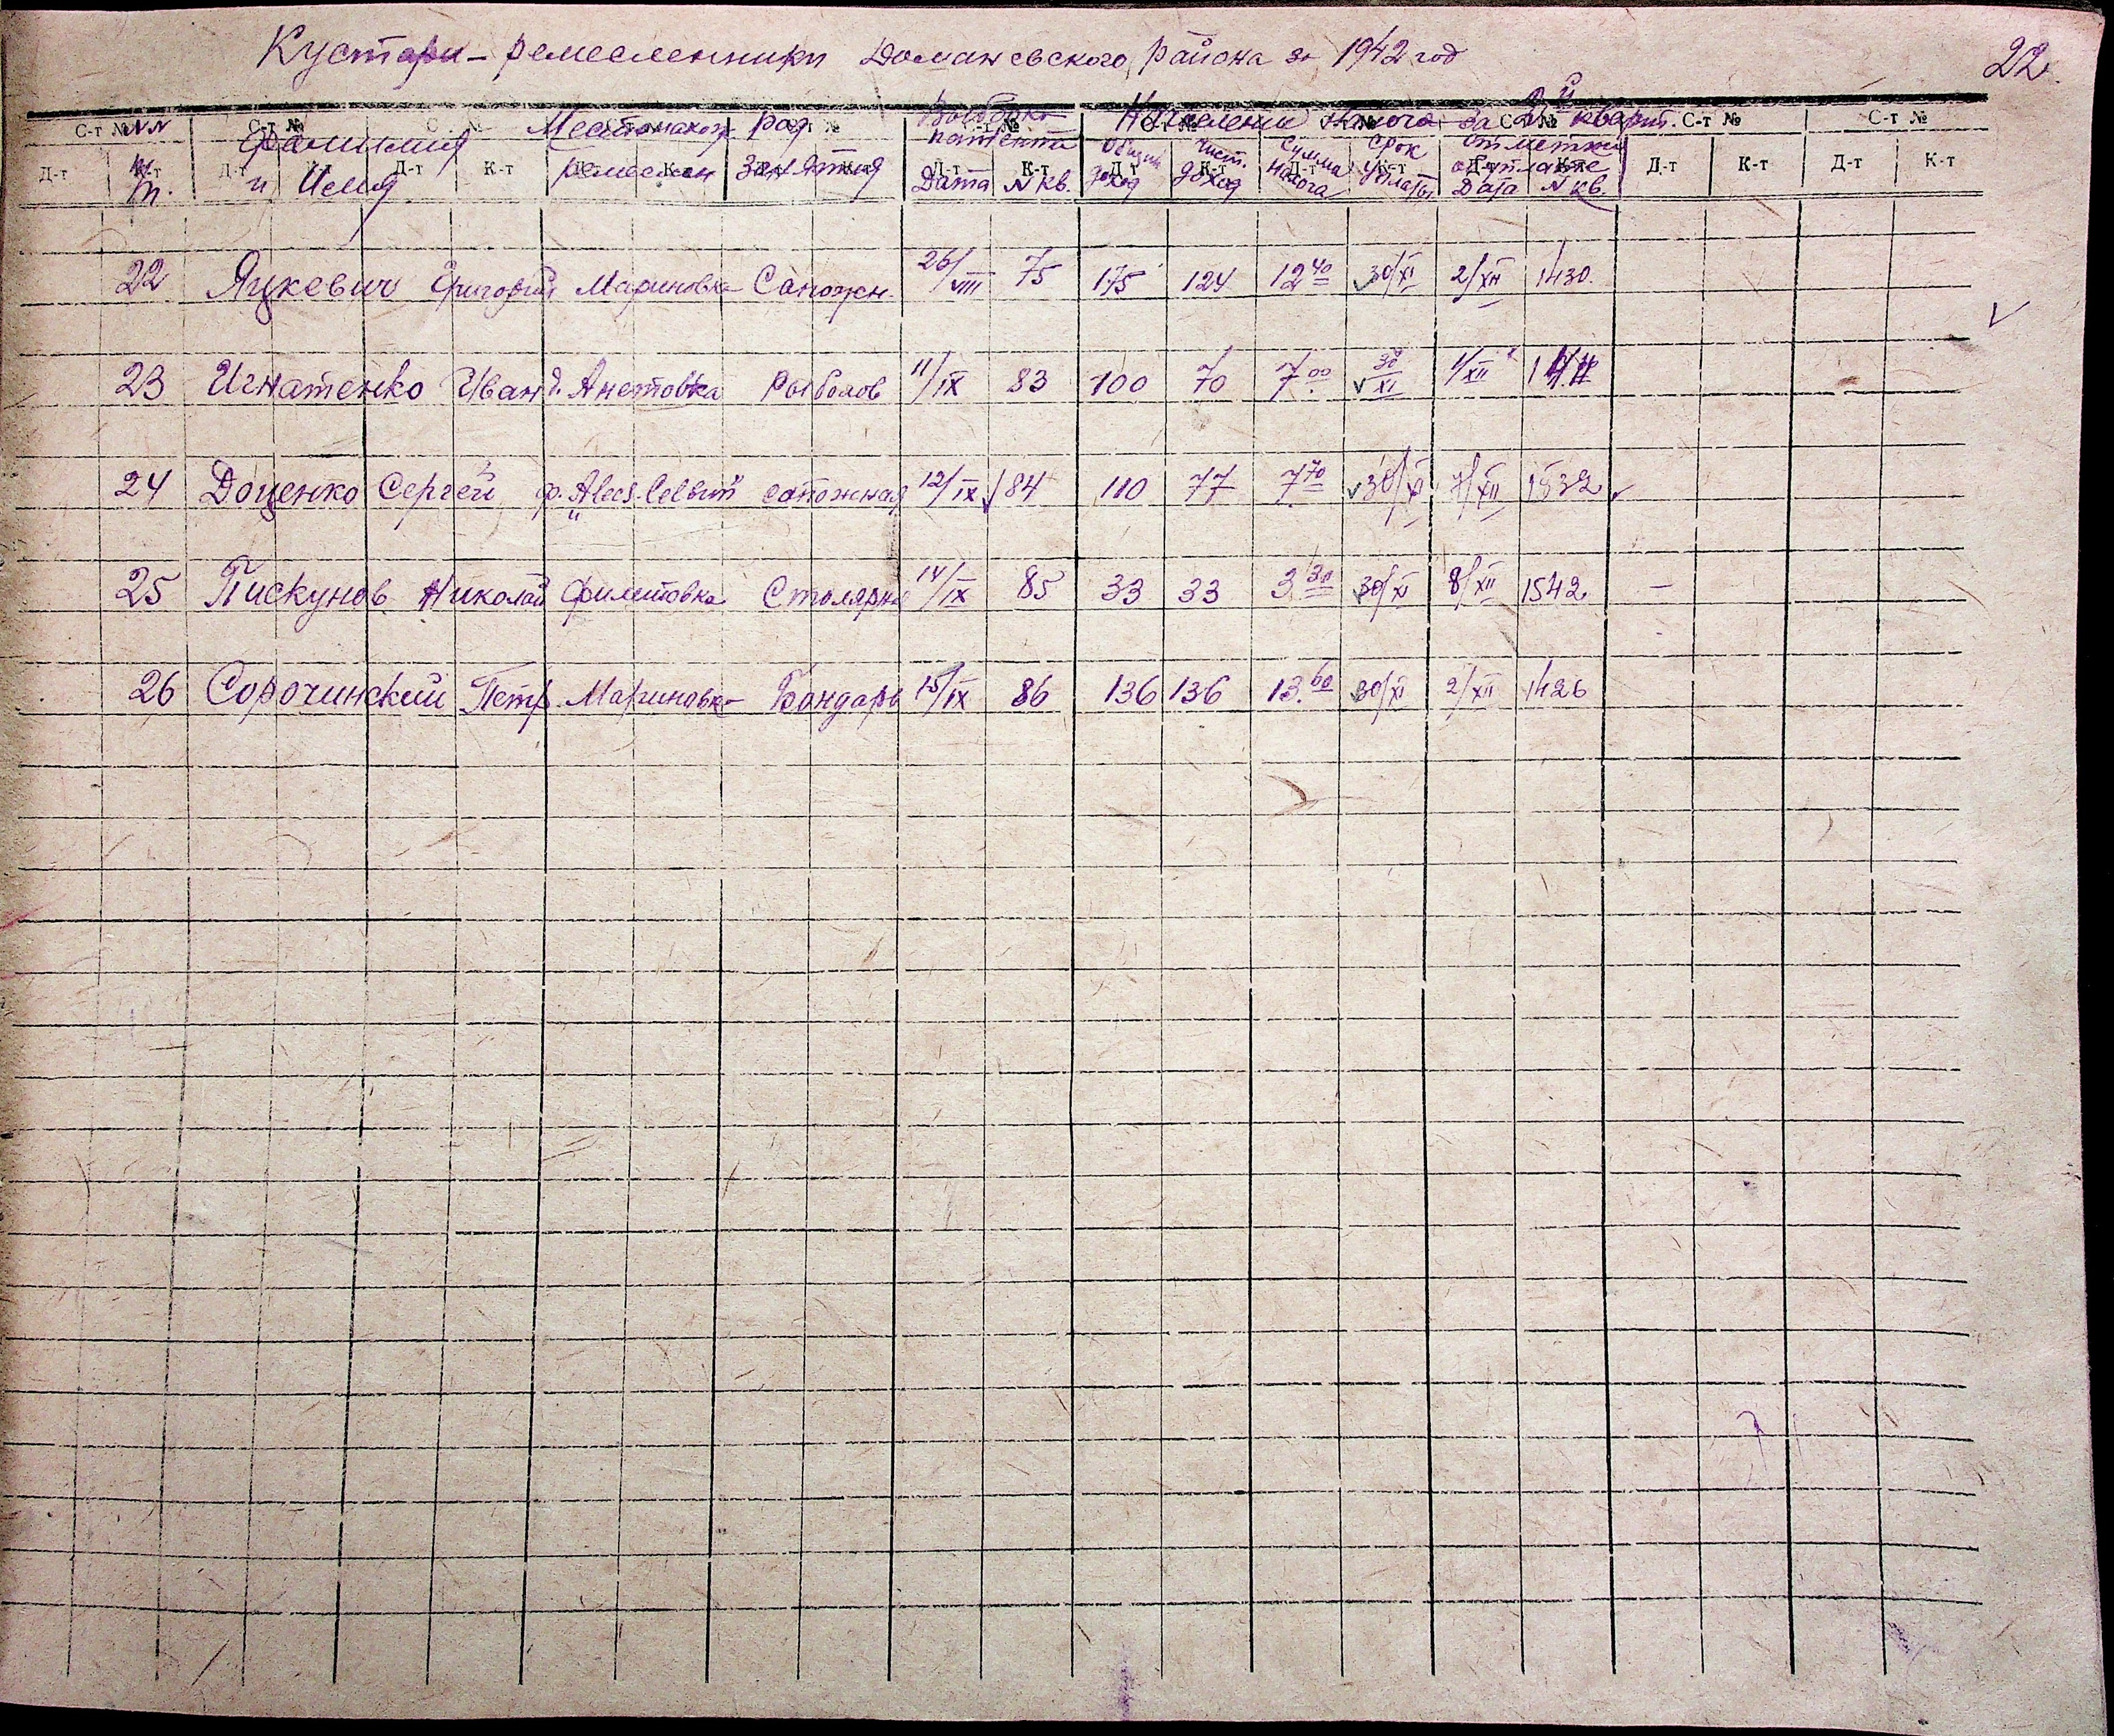 Кустари-ремесленники Доманевского района за 1942 год
22.
С-т № С-т № С-т № С-т № С-т № С-т № С-т № С-т № С-т № С-т №
NN Фамилия Местонахож. Род Выборка Начисление налога за й кварт.
и Имя ремеслен занятия патента Общий чист. Сумма срок отметки
п. доход доход налога уплаты о уплате
Дата N кв. Дата N кв.
Д-т К-т Д-т К-т Д-т К-т Д-т К-т Д-т К-т Д-т К-т Д-т К-т Д-т К-т Д-т К-т Д-т К-т
22 Яцкевич Григорий Мариновка Сапожн. 26/VIII 75 175 124 12 40 30/XI 2/XII 1430.
23 Игнатенко Иван д. Анетовка Рыболов 11/IX 83 100 70 7 00 30/XI 1/XII
24 Доценко Сергей сапожная 12/IX 84 110 77 7 70 30/XI 7/XII 1532
25 Пискунов Николай Филиповка Столярна 14/IX 85 33 33 3 30 30/XI 8/XII 1542 —
26 Сорочинский Петр Мариновка Бондарь 15/IX 86 136 136 13. 60 30/XI 2/XII 1426